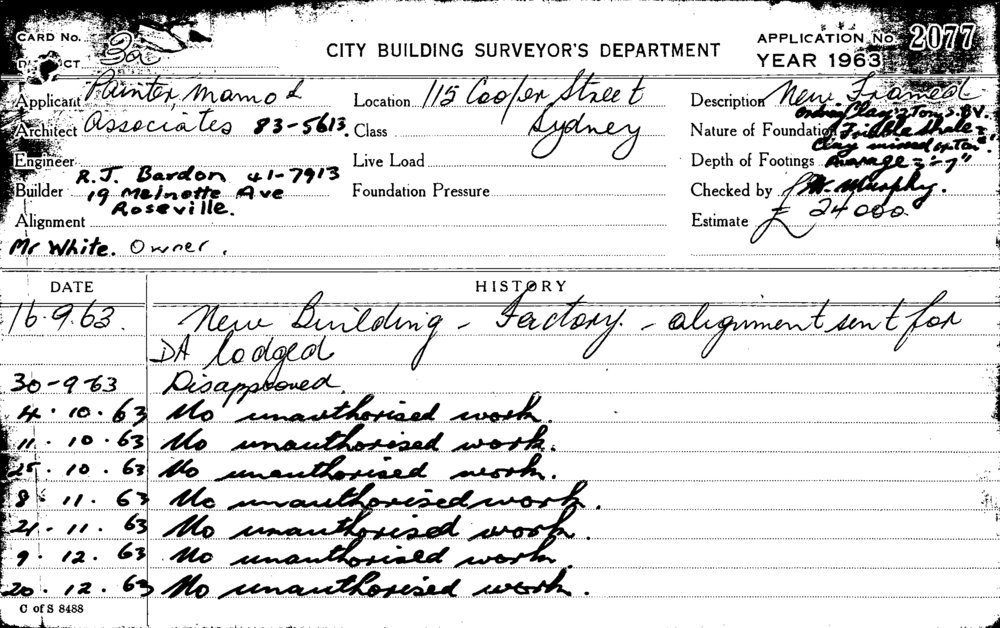 CARD No.
CITY BUILDING SURVEYOR'S DEPARTMENT
APPLICATION No. 2077
3a
YEAR 1963
Applicant Painter, Mamo &
Location 115 Cooper Street
Description New Framed
Architect Associates 83-5613.
Class
Sydney
Nature of Foundation Friable Shale &
Clay mixed
Engineer
Live Load
Depth of Footings Average = 7"
Builder R.J. Bardon 41-7913
19 Melnotte Ave
Roseville.
Foundation Pressure
Checked by W. Murphy.
Alignment
Estimate £ 24000.
Mr White. Owner.
DATE
HISTORY
16.9.63. New Building - Factory. - alignment sent for
DA lodged
30-9-63 Disapproved.
4.10.63 No unauthorised work.
11.10.63 No unauthorised work.
25.10.63 No unauthorised work.
8.11.63 No unauthorised work.
21.11.63 No unauthorised work.
9.12.63 No unauthorised work.
20.12.63 No unauthorised work.
C of S 8488